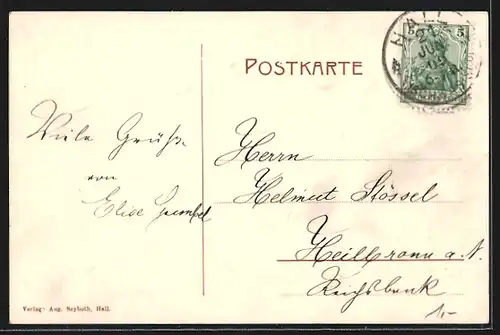 POSTKARTE
HALL
21
JUN
09
5
Viele Grüße
von
Elise
Herrn
Helmut Stössel
Heilbronn a. N.
Reichsbank
1.-
Verlag: Aug. Seyboth, Hall.